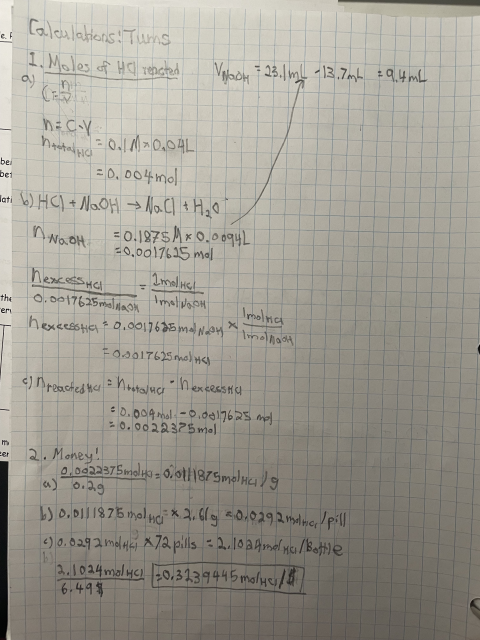 Calculations: Tums
1. Moles of HCl reacted
V NaOH = 23.1mL - 13.7mL = 9.4mL
a)
C = n/V
n = C·V
n total HCl = 0.1M × 0.04L
= 0.004mol
b) HCl + NaOH → NaCl + H2O
n NaOH = 0.1875M × 0.0094L
= 0.0017625 mol
n excess HCl / 0.0017625 mol NaOH = 1mol HCl / 1mol NaOH
n excess HCl = 0.0017625 mol NaOH × 1mol HCl / 1mol NaOH
= 0.0017625 mol HCl
c) n reacted HCl = n total HCl - n excess HCl
= 0.004mol - 0.0017625 mol
= 0.0022375 mol
2. Money!
a) 0.0022375 mol HCl / 0.2g = 0.0111875 mol HCl/g
b) 0.0111875 mol HCl = × 2.61g = 0.0292 mol HCl/pill
c) 0.0292 mol HCl × 72 pills = 2.1024 mol HCl/Bottle
2.1024 mol HCl / 6.49$ = 0.3239445 mol HCl/$